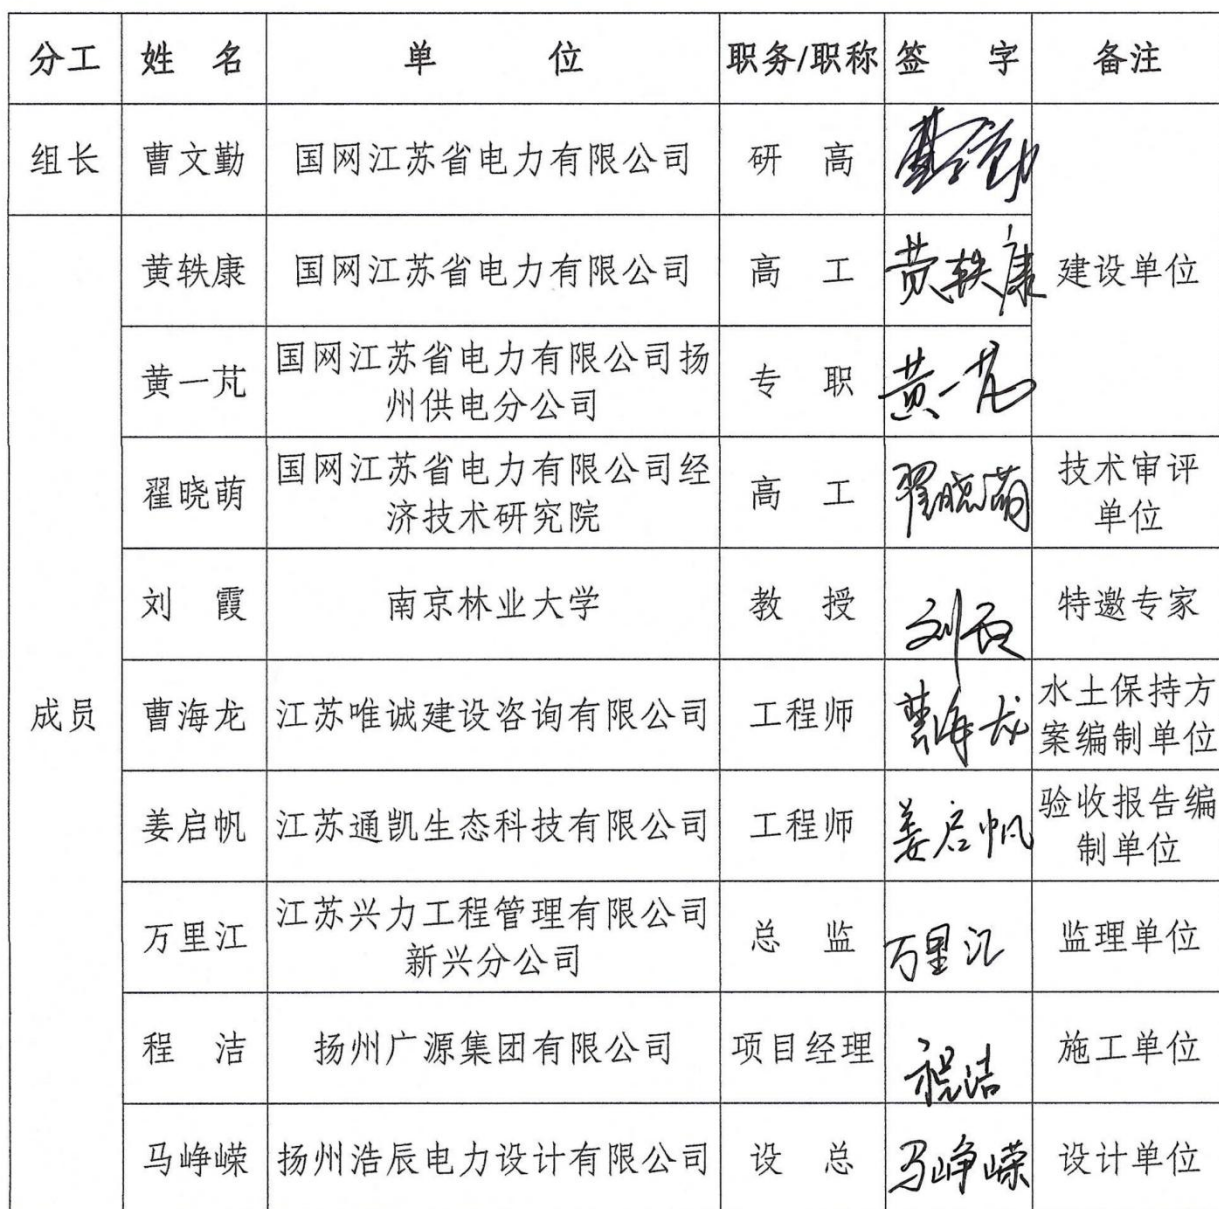 分工 姓 名 单 位 职务/职称 签 字 备注
组长 曹文勤 国网江苏省电力有限公司 研 高 曹文勤
黄轶康 国网江苏省电力有限公司 高 工 黄轶康 建设单位
黄一芃 国网江苏省电力有限公司扬
州供电分公司 专 职 黄一芃
翟晓萌 国网江苏省电力有限公司经
济技术研究院 高 工 翟晓萌 技术审评
单位
刘 霞 南京林业大学 教 授 刘霞 特邀专家
成员 曹海龙 江苏唯诚建设咨询有限公司 工程师 曹海龙 水土保持方
案编制单位
姜启帆 江苏通凯生态科技有限公司 工程师 姜启帆 验收报告编
制单位
万里江 江苏兴力工程管理有限公司
新兴分公司 总 监 万里江 监理单位
程 洁 扬州广源集团有限公司 项目经理 程洁 施工单位
马峥嵘 扬州浩辰电力设计有限公司 设 总 马峥嵘 设计单位